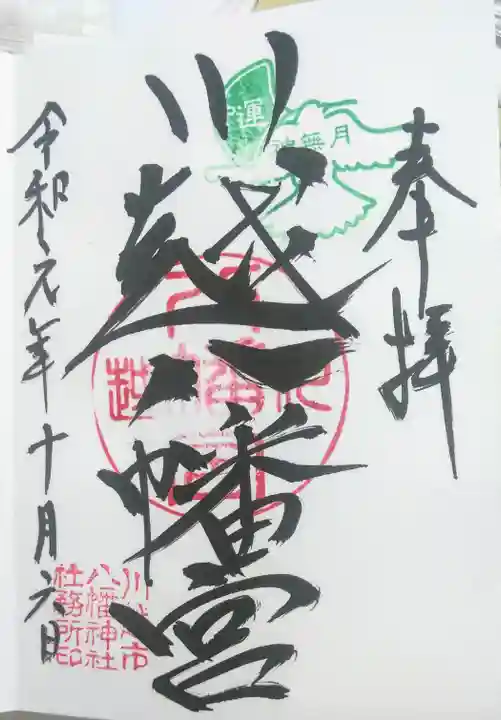 奉拝
川越八幡宮
令和元年十月六日
神無月
川越市
八幡神社
社務所印